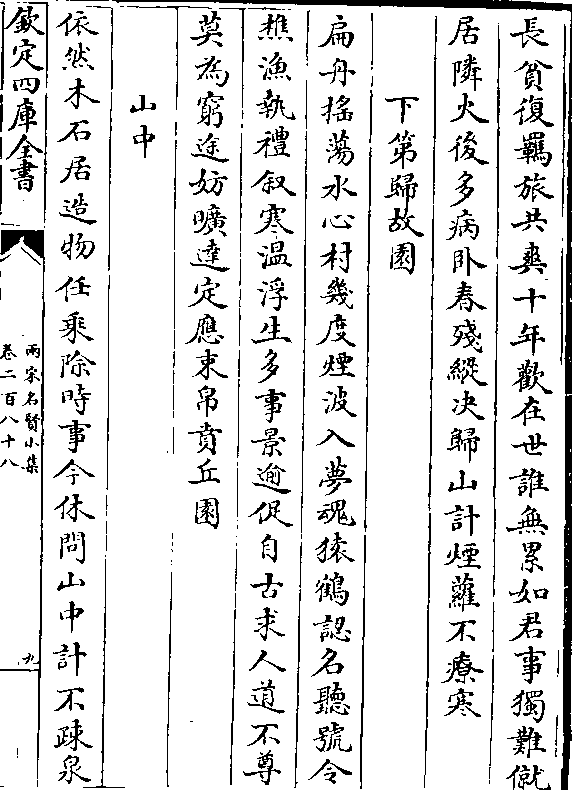 長貧復羈旅共爽十年歡在世誰無累如君事獨難僦
居隣火後多病卧春殘縱决歸山計煙蘿不療寒
下第歸故園
扁舟揺蕩水心村幾度煙波入夢魂猿鶴認名聽號令
樵漁執禮叙寒温浮生多事景逾促自古求人道不尊
莫為窮途妨曠達定應束帛賁丘園
山中
依然木石居造物任乘除時事今休問山中計不疎泉
欽定四庫全書
兩宋名賢小集
卷二百八十八
九